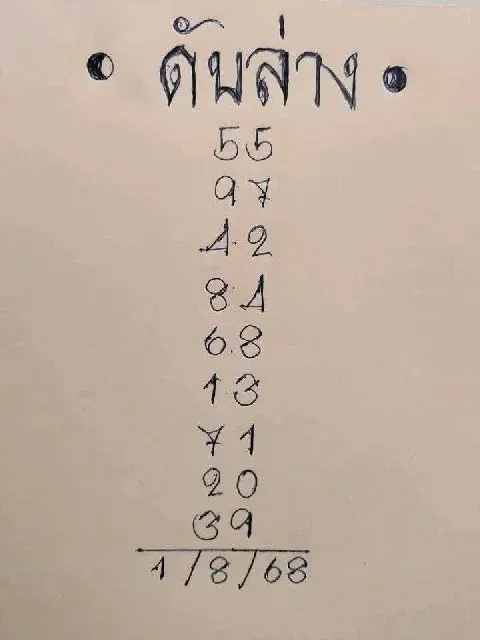 • ดับล่าง •
55
97
4.2
8.4
6.8
13
71
20
39
1/8/68